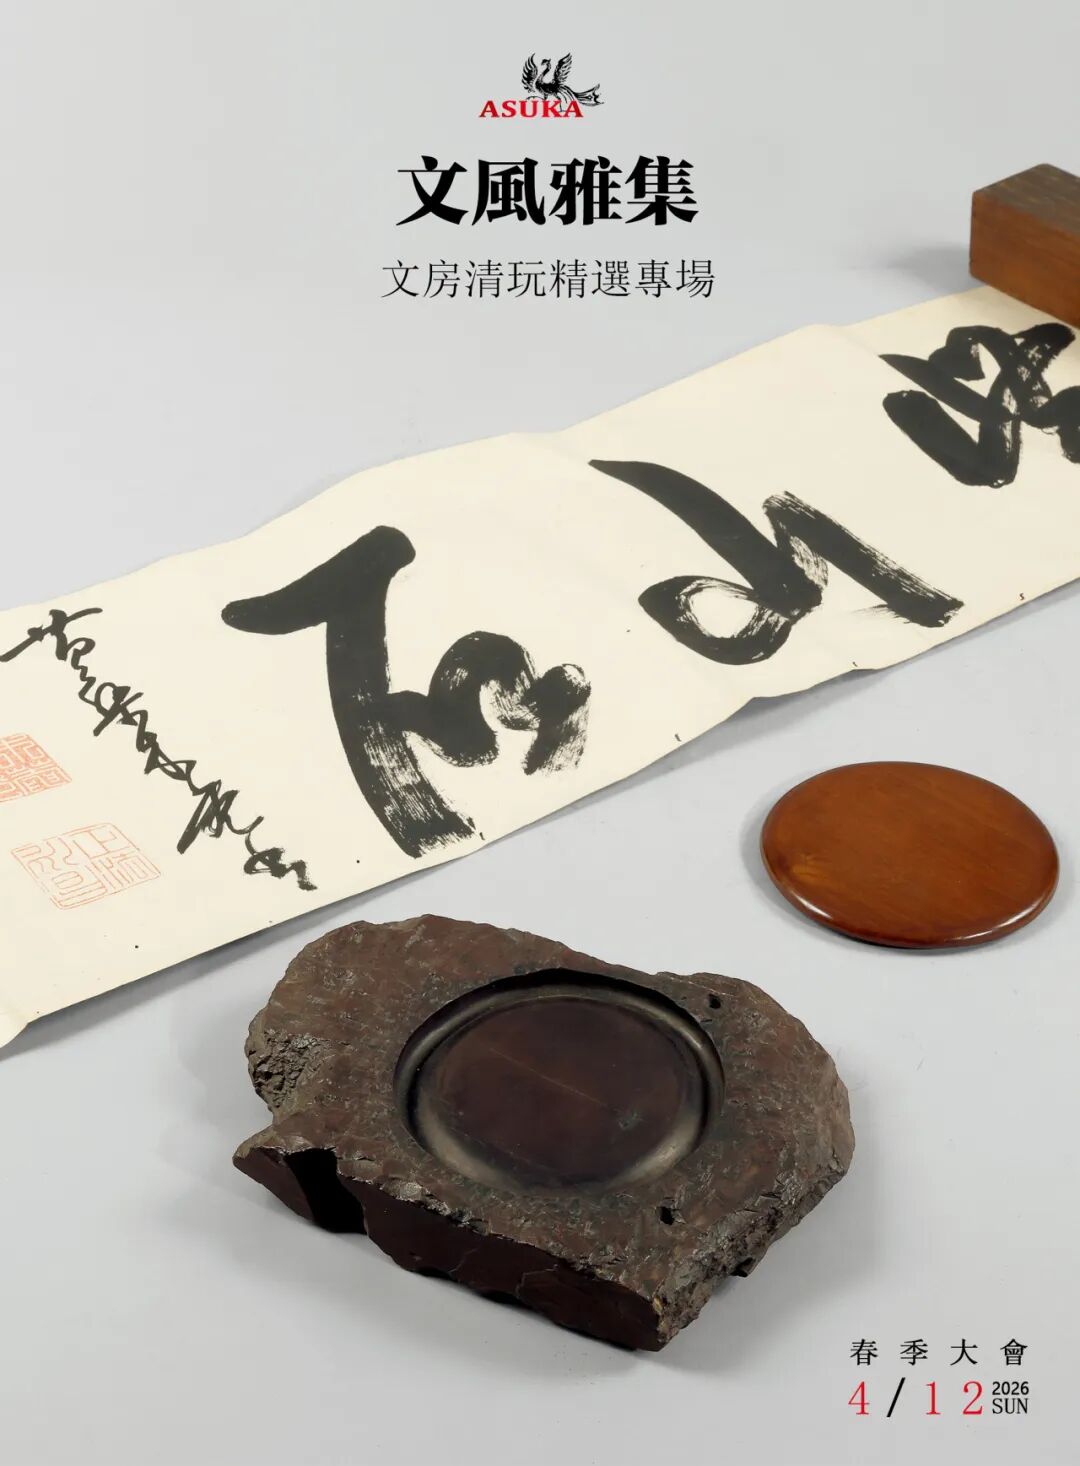 ASUKA
文風雅集
文房清玩精選專場
石
山
春季大會
4/12 2026 SUN